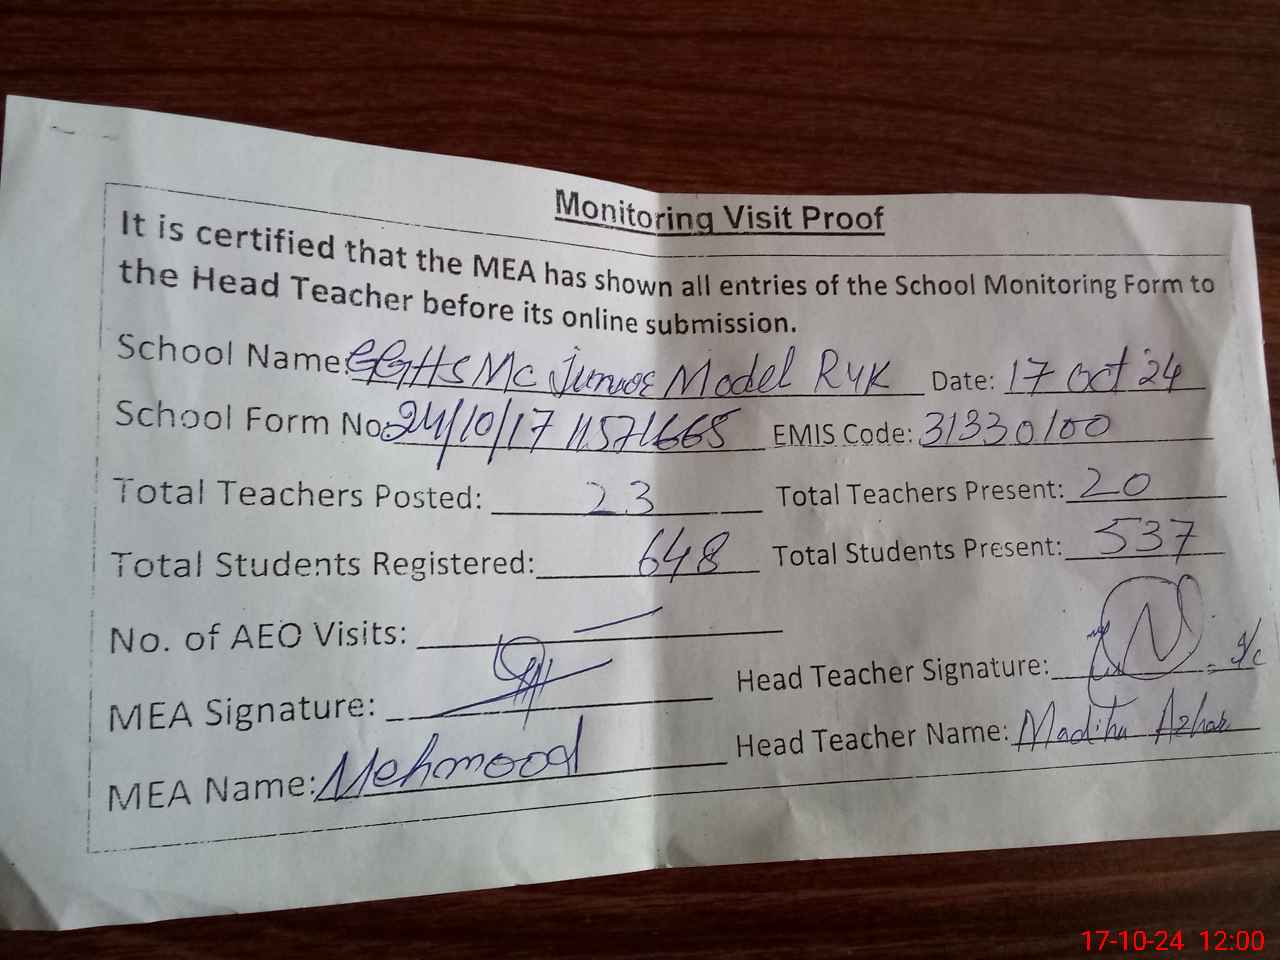 Monitoring Visit Proof
It is certified that the MEA has shown all entries of the School Monitoring Form to
the Head Teacher before its online submission.
School Name: GGHS Mc Junior Model RYK Date: 17 Oct 24
School Form No: 24/10/17 11571665 EMIS Code: 31330100
Total Teachers Posted: 23 Total Teachers Present: 20
Total Students Registered: 648 Total Students Present: 537
No. of AEO Visits: —
MEA Signature: Head Teacher Signature: I/c
MEA Name: Mehmood Head Teacher Name: Madiha Azhar
17-10-24 12:00